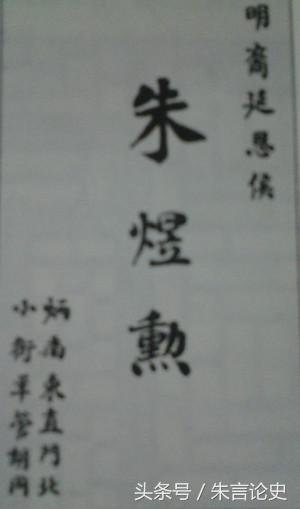 明裔延恩侯
朱煜勳
炳南東直門北
小街羊管胡同
头条号／朱言论史